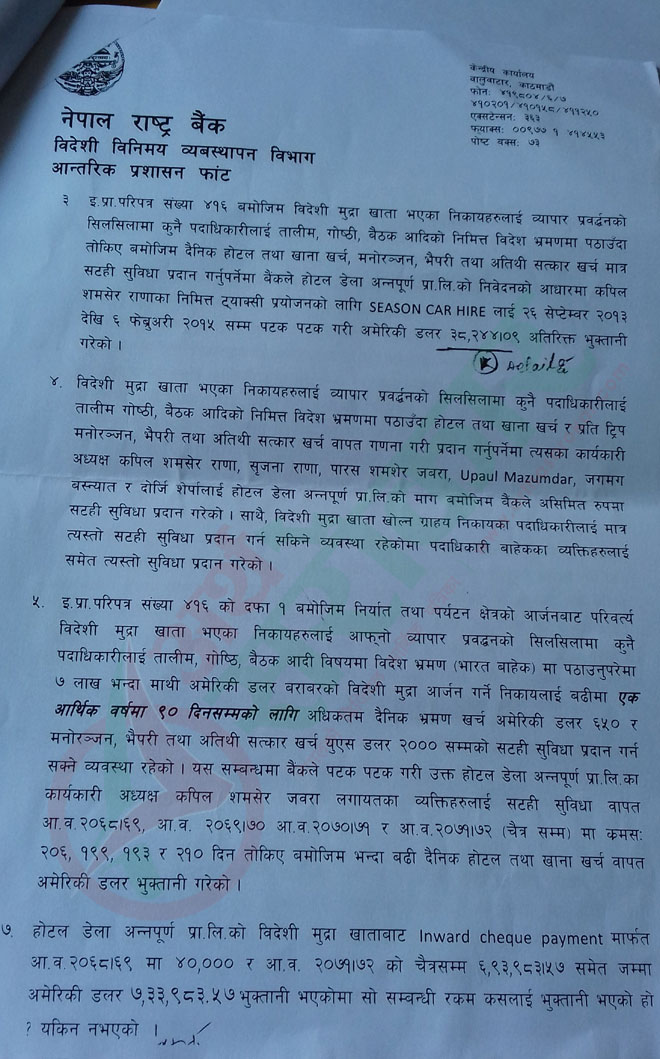 केन्द्रीय कार्यालय
बालुवाटार, काठमाडौं
फोन: ४१९८०४/६/७
४१०२०१/४१०१५८/४११२५०
एक्सटेन्सन: ३६३
फ्याक्स: ००९७७ १ ४१४५५३
पोष्ट बक्स: ७३
नेपाल राष्ट्र बैंक
विदेशी विनिमय व्यबस्थापन विभाग
आन्तरिक प्रशासन फांट
३ इ.प्रा.परिपत्र संख्या ४१६ बमोजिम विदेशी मुद्रा खाता भएका निकायहरुलाई व्यापार प्रवर्द्धनको
सिलसिलामा कुनै पदाधिकारीलाई तालीम, गोष्ठी, बैठक आदिको निमित्त विदेश भ्रमणमा पठाउँदा
तोकिए बमोजिम दैनिक होटल तथा खाना खर्च, मनोरञ्जन, भैपरी तथा अतिथी सत्कार खर्च मात्र
सटही सुविधा प्रदान गर्नुपर्नेमा बैंकले होटल डेला अन्नपूर्ण प्रा.लि.को निवेदनको आधारमा कपिल
शमसेर राणाका निमित्त ट्याक्सी प्रयोजनको लागि SEASON CAR HIRE लाई २६ सेप्टेम्बर २०१३
देखि ६ फेब्रुअरी २०१५ सम्म पटक पटक गरी अमेरिकी डलर ३८,२४४।०९ अतिरिक्त भुक्तानी
गरेको ।
४. विदेशी मुद्रा खाता भएका निकायहरुलाई व्यापार प्रवर्द्धनको सिलसिलामा कुनै पदाधिकारीलाई
तालीम गोष्ठी, बैठक आदिको निमित्त विदेश भ्रमणमा पठाउँदा होटल तथा खाना खर्च र प्रति ट्रिप
मनोरञ्जन, भैपरी तथा अतिथी सत्कार खर्च वापत गणना गरी प्रदान गर्नुपर्नेमा त्यसका कार्यकारी
अध्यक्ष कपिल शमसेर राणा, सृजना राणा, पारस शमशेर जवरा, Upaul Mazumdar, जगमग
बस्न्यात र दोर्जि शेर्पालाई होटल डेला अन्नपूर्ण प्रा.लि.को माग बमोजिम बैंकले असिमित रुपमा
सटही सुविधा प्रदान गरेको । साथै, विदेशी मुद्रा खाता खोल्न ग्राहय निकायका पदाधिकारीलाई मात्र
त्यस्तो सटही सुविधा प्रदान गर्न सकिने व्यवस्था रहेकोमा पदाधिकारी बाहेकका व्यक्तिहरुलाई
समेत त्यस्तो सुविधा प्रदान गरेको ।
५. इ.प्रा.परिपत्र संख्या ४१६ को दफा १ बमोजिम निर्यात तथा पर्यटन क्षेत्रको आर्जनबाट परिवर्त्य
विदेशी मुद्रा खाता भएका निकायहरुलाई आफ्नो व्यापार प्रवद्धनको सिलसिलामा कुनै
पदाधिकारीलाई तालीम, गोष्ठि, बैठक आदी विषयमा विदेश भ्रमण (भारत बाहेक) मा पठाउनुपरेमा
७ लाख भन्दा माथी अमेरिकी डलर बराबरको विदेशी मुद्रा आर्जन गर्ने निकायलाई बढीमा एक
आर्थिक वर्षमा ९० दिनसम्मको लागि अधिकतम दैनिक भ्रमण खर्च अमेरिकी डलर ६५० र
मनोरञ्जन, भैपरी तथा अतिथी सत्कार खर्च युएस डलर २००० सम्मको सटही सुविधा प्रदान गर्न
सक्ने व्यवस्था रहेको । यस सम्बन्धमा बैंकले पटक पटक गरी उक्त होटल डेला अन्नपूर्ण प्रा.लि.का
कार्यकारी अध्यक्ष कपिल शमसेर जवरा लगायतका व्यक्तिहरुलाई सटही सुविधा वापत
आ.व.२०६८।६९, आ.व. २०६९।७० आ.व.२०७०।७१ र आ.व.२०७१।७२ (चैत्र सम्म) मा कमस:
२०६, १९९, १९३ र २१० दिन तोकिए बमोजिम भन्दा बढी दैनिक होटल तथा खाना खर्च वापत
अमेरिकी डलर भुक्तानी गरेको ।
७. होटल डेला अन्नपूर्ण प्रा.लि.को विदेशी मुद्रा खाताबाट Inward cheque payment मार्फत
आ.व.२०६८।६९ मा ४०,००० र आ.व. २०७१।७२ को चैत्रसम्म ६,९३,९८३।५७ समेत जम्मा
अमेरिकी डलर ७,३३,९८३.५७ भुक्तानी भएकोमा सो सम्बन्धी रकम कसलाई भुक्तानी भएको हो
? यकिन नभएको ।